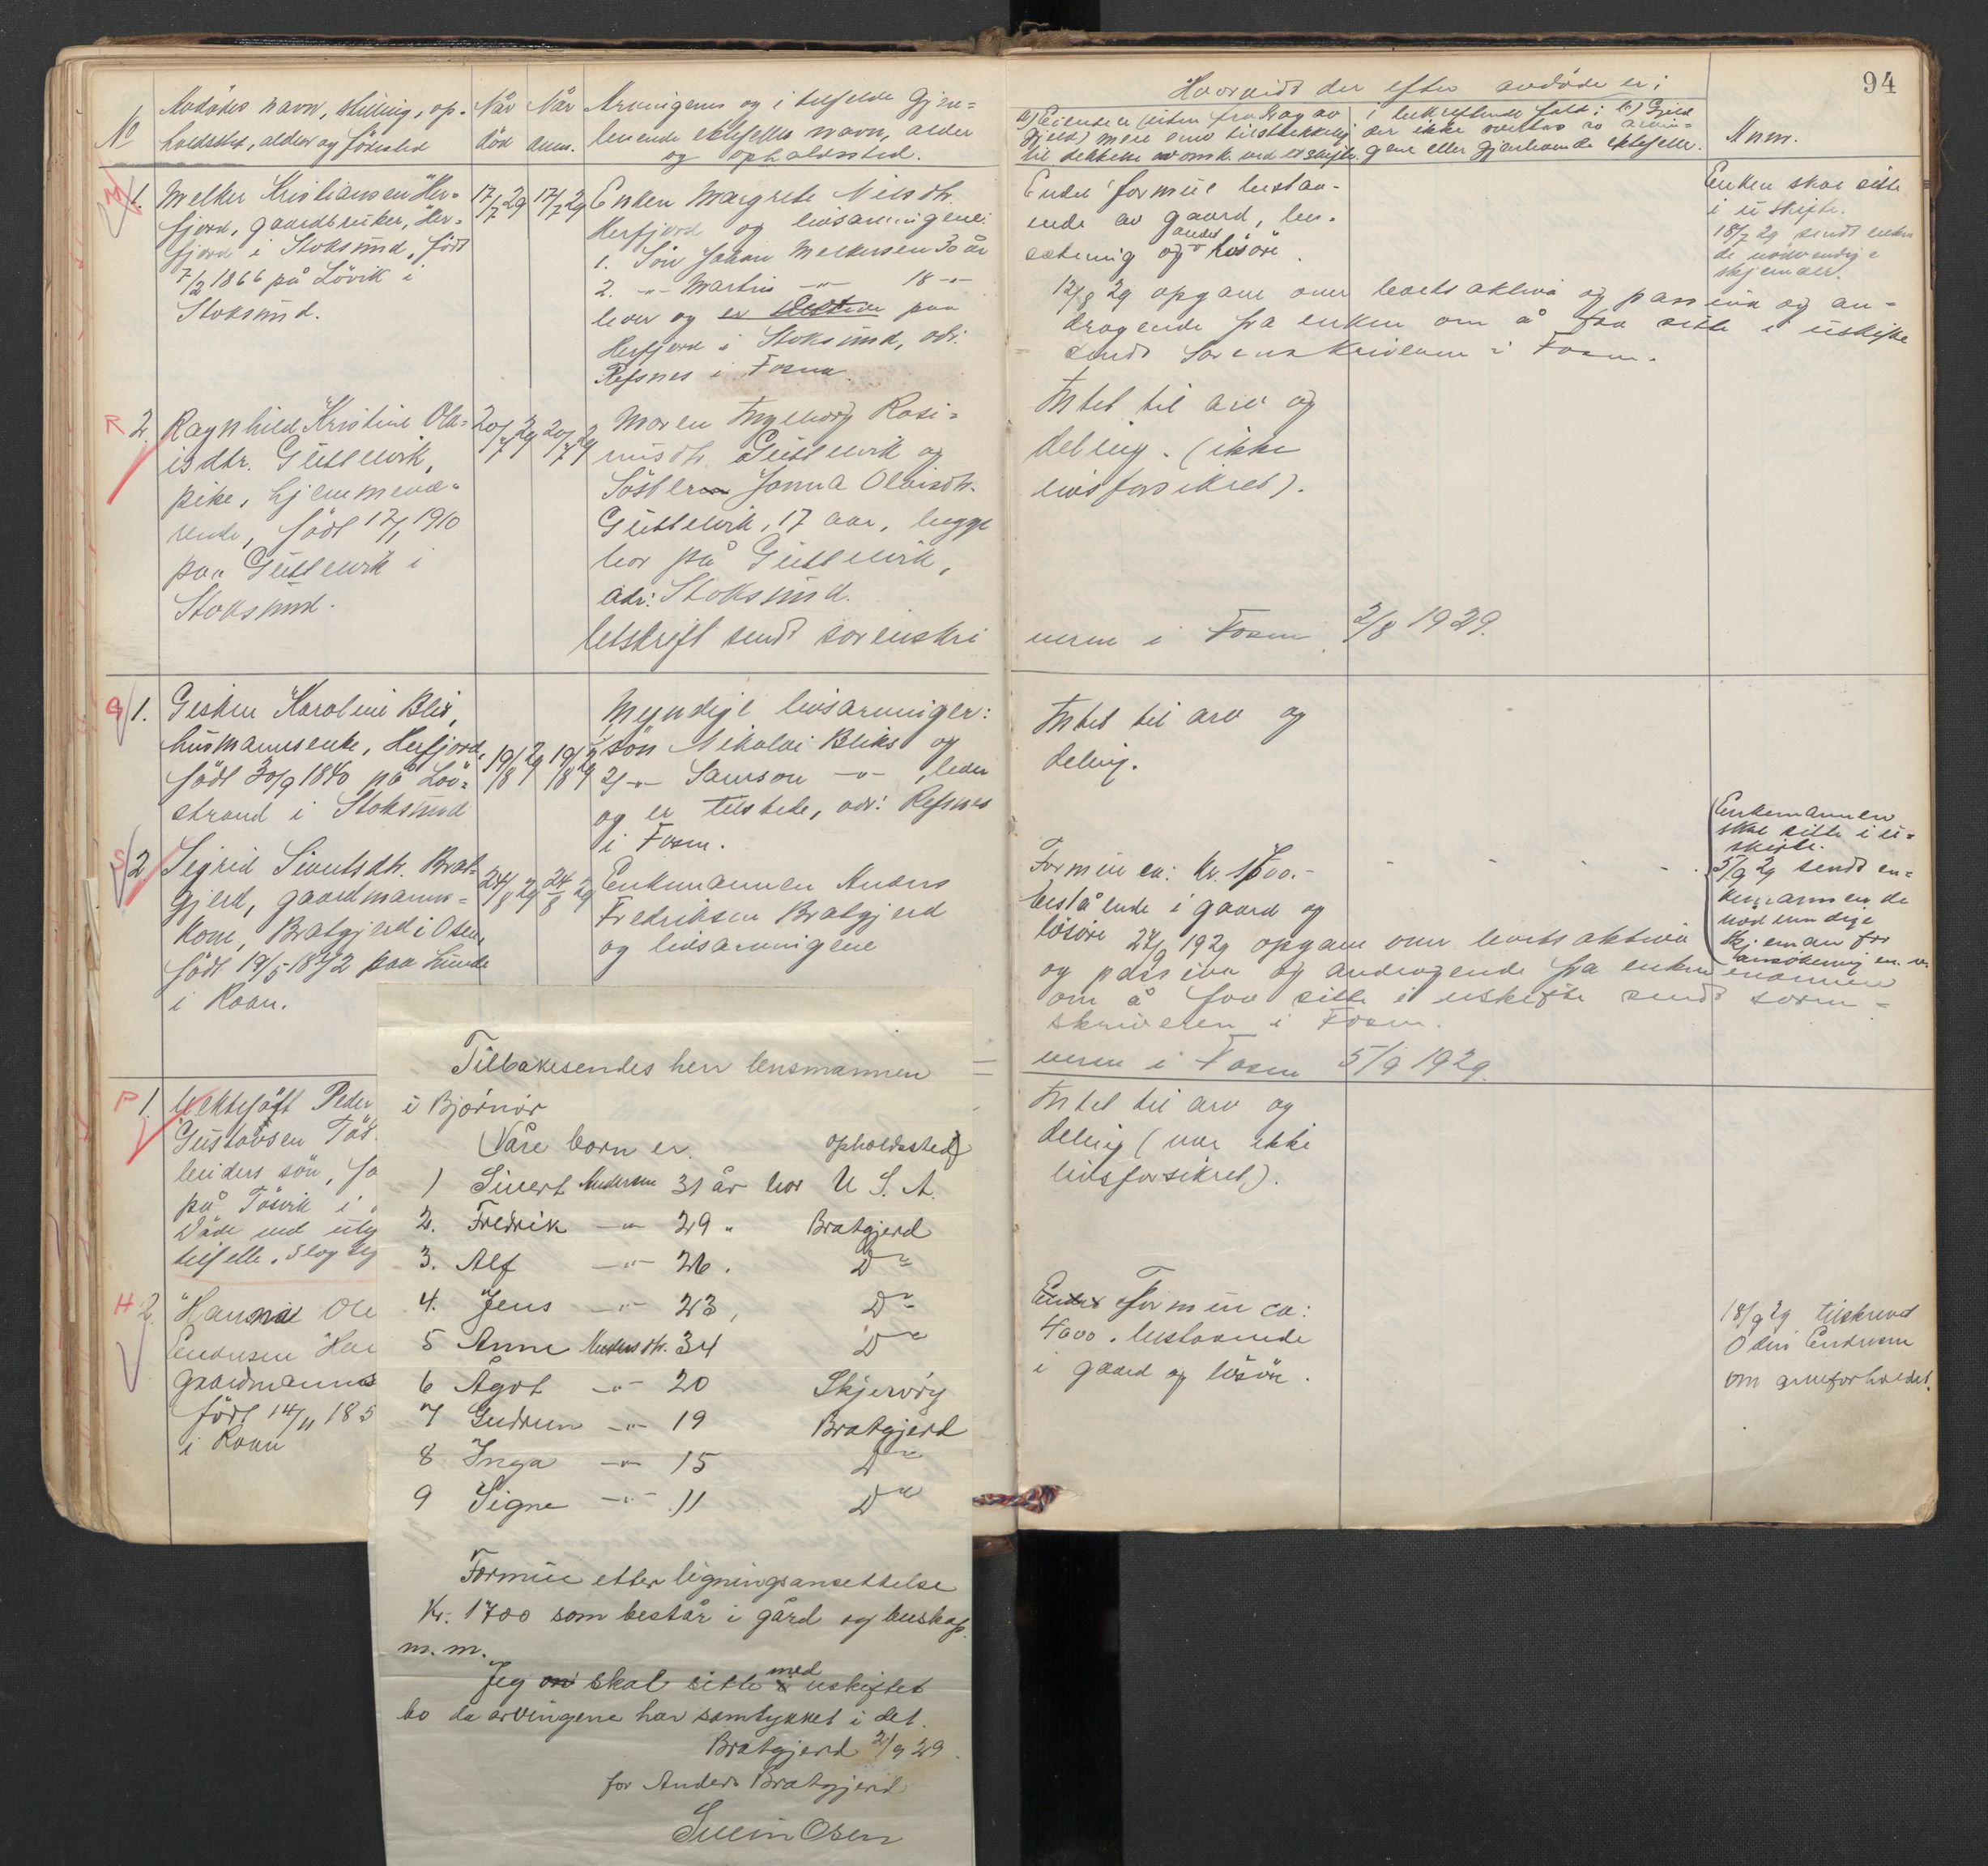 94
No
Avdødes navn, stilling, op-
holdssted, alder og fødested
Når
død
Når
anm.
Arvingenes og i tilfelde gjen-
levende ektefelles navn, alder
og opholdssted.
Hvorvidt der efter avdøde er:
a) Eiendeler (uten fradrag av
gjeld) mere enn tilstrekkelig
til dekkelse av omk. ved et skifte.
i bekreftende fald: b) Gjeld
der ikke overtas av arvin-
gene eller gjenlevende ektefelle.
Anm.
M 1. Melker Kristiansen Her-
fjord, gaardbruker, Her-
fjord i Stoksund, født
7/2 1866 på Løvik i
Stoksund.
17/7 29
17/7 29
Enken Margrete Nilsdtr.
Herfjord og livsarvingene:
1. Søn Johan Melkersen 30 år
2. -"- Martin -"- 18 -"-
lever og er paa
Herfjord i Stoksund, adr.
Refsnes i Fosna
Endel formue bestaa-
ende av gaard, be-
sætning og andet løsøre.
12/8 29 opgave over boets aktiva og passiva og an-
dragende fra enken om å faa sitte i uskifte
sendt sorenskriveren i Fosen.
Enken skal sitte
i uskifte.
18/7 29 sendt enken
de nødvendige
skjemaer.
R 2. Ragnhild Kristine Ola-
isdtr. Guttelvik,
pike, hjemmevæ-
rende, født 17/1 1910
paa Guttelvik i
Stoksund.
20/7 29
20/7 29
Moren Ingeborg Rasi-
musdtr. Guttelvik og
Søster Jonna Olaisdtr.
Guttelvik, 17 aar, begge
bor på Guttelvik,
adr: Stoksund.
Utskrift sendt sorenskri
veren i Fosen 2/8 1929.
Intet til arv og
deling. (ikke
livsforsikret).
G 1. Gisken Karoline Blix,
husmannsenke, Herfjord,
født 30/9 1840 på Løv-
strand i Stoksund
19/8 29
19/8 29
Myndige livsarvinger:
søn Nikolai Bliks og
2) -"- Samson -"-, leder
og er tilstede, adr: Refsnes
i Fosen.
Intet til arv og
deling.
S 2 Sigrid Sivertsdtr. Brat-
gjerd, gaardmanns-
kone, Bratgjerd i Osen,
født 19/5 1872 paa Sunde
i Roan.
24/8 29
24/8 29
Enkemannen Anders
Fredriksen Bratgjerd
og livsarvingene
Formue ca: kr. 1700.-
bestående i gaard og
løsøre
24/9 1929 opgave over boets aktiva
og passiva og andragende fra enkemannen
om å faa sitte i uskifte sendt soren-
skriveren i Fosen.
veren i Fosen 5/9 1929.
Enkemannen
skal sitte i u-
skifte.
5/9 29 sendt en-
kemannen de
nødvendige
skjemaer for
ansøkning
P 1. Uektefødt Peder
Gustavsen Tøs
leiers søn, fø
på Tøsvik i
Døde ved uly
tilfelle. Slog seg
Intet til arv og
deling (var ikke
livsforsikret).
H 2. Hanna Ole
Endresen Har
gaardmanns
født 14/11 185
i Roan
Endel Formue ca:
4000. bestaaende
i gaard og løsøre.
18/9 29 tilskrevet
Odin Endresen
om arveforholdet.
Tilbakesendes herr lensmannen
i Bjørnør
Våre born er. opholdssted
1 Sivert Andersen 31 år bor U. S. A.
2. Fredrik -"- 29 " Bratgjerd
3. Alf -"- 26. Do
4. Jens -"- 23, Do
5 Anne Andersdtr. 34 Do
6 Ågot -"- 20 Skjervøy
7 Gudrun -"- 19 Bratgjerd
8 Inga -"- 15 Do
9 Signe -"- 11 Do
Formue etter ligningsansettelse
Kr. 1700 som består i gård og buskap
m. m.
Jeg skal sitte med uskiftet
bo da arvingene har samtykket i det.
Bratgjerd 21/9 29.
for Anders Bratgjerd
Svein Osen